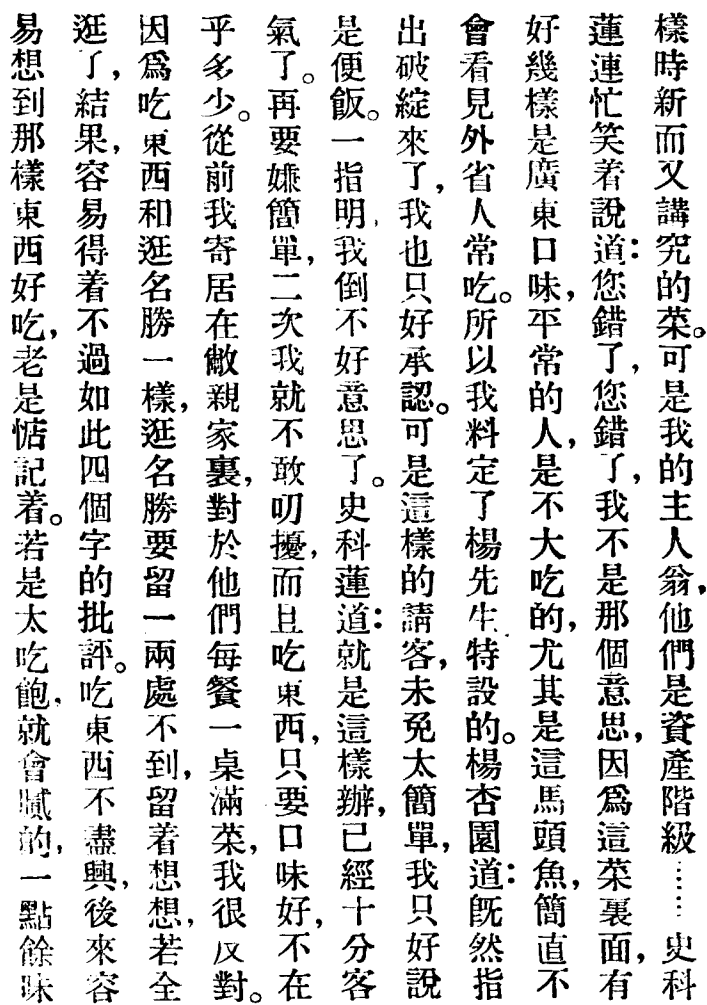 樣時新而又講究的菜。可是我的主人翁，他們是資產階級……史科
蓮連忙笑着說道：您錯了，您錯了，我不是那個意思，因爲這菜裏面，有
好幾樣是廣東口味，平常的人，是不大吃的，尤其是這馬頭魚，簡直不
會看見外省人常吃。所以我料定了楊先生特設的。楊杏園道：旣然指
出破綻來了，我也只好承認。可是這樣的請客，未免太簡單，我只好說
是便飯。一指明，我倒不好意思了。史科蓮道：就是這樣辦，已經十分客
氣了。再要嫌簡單，二次我就不敢叨擾，而且吃東西，只要口味好，不在
乎多少。從前我寄居在敝親家裏，對於他們每餐一桌滿菜，我很反對。
因爲吃東西和逛名勝一樣，逛名勝要留一兩處不到，留着想想，若全
逛了，結果，容易得着不過如此四個字的批評。吃東西不盡興，後來容
易想到那樣東西好吃，老是惦記着。若是太吃飽，就會膩的，一點餘味